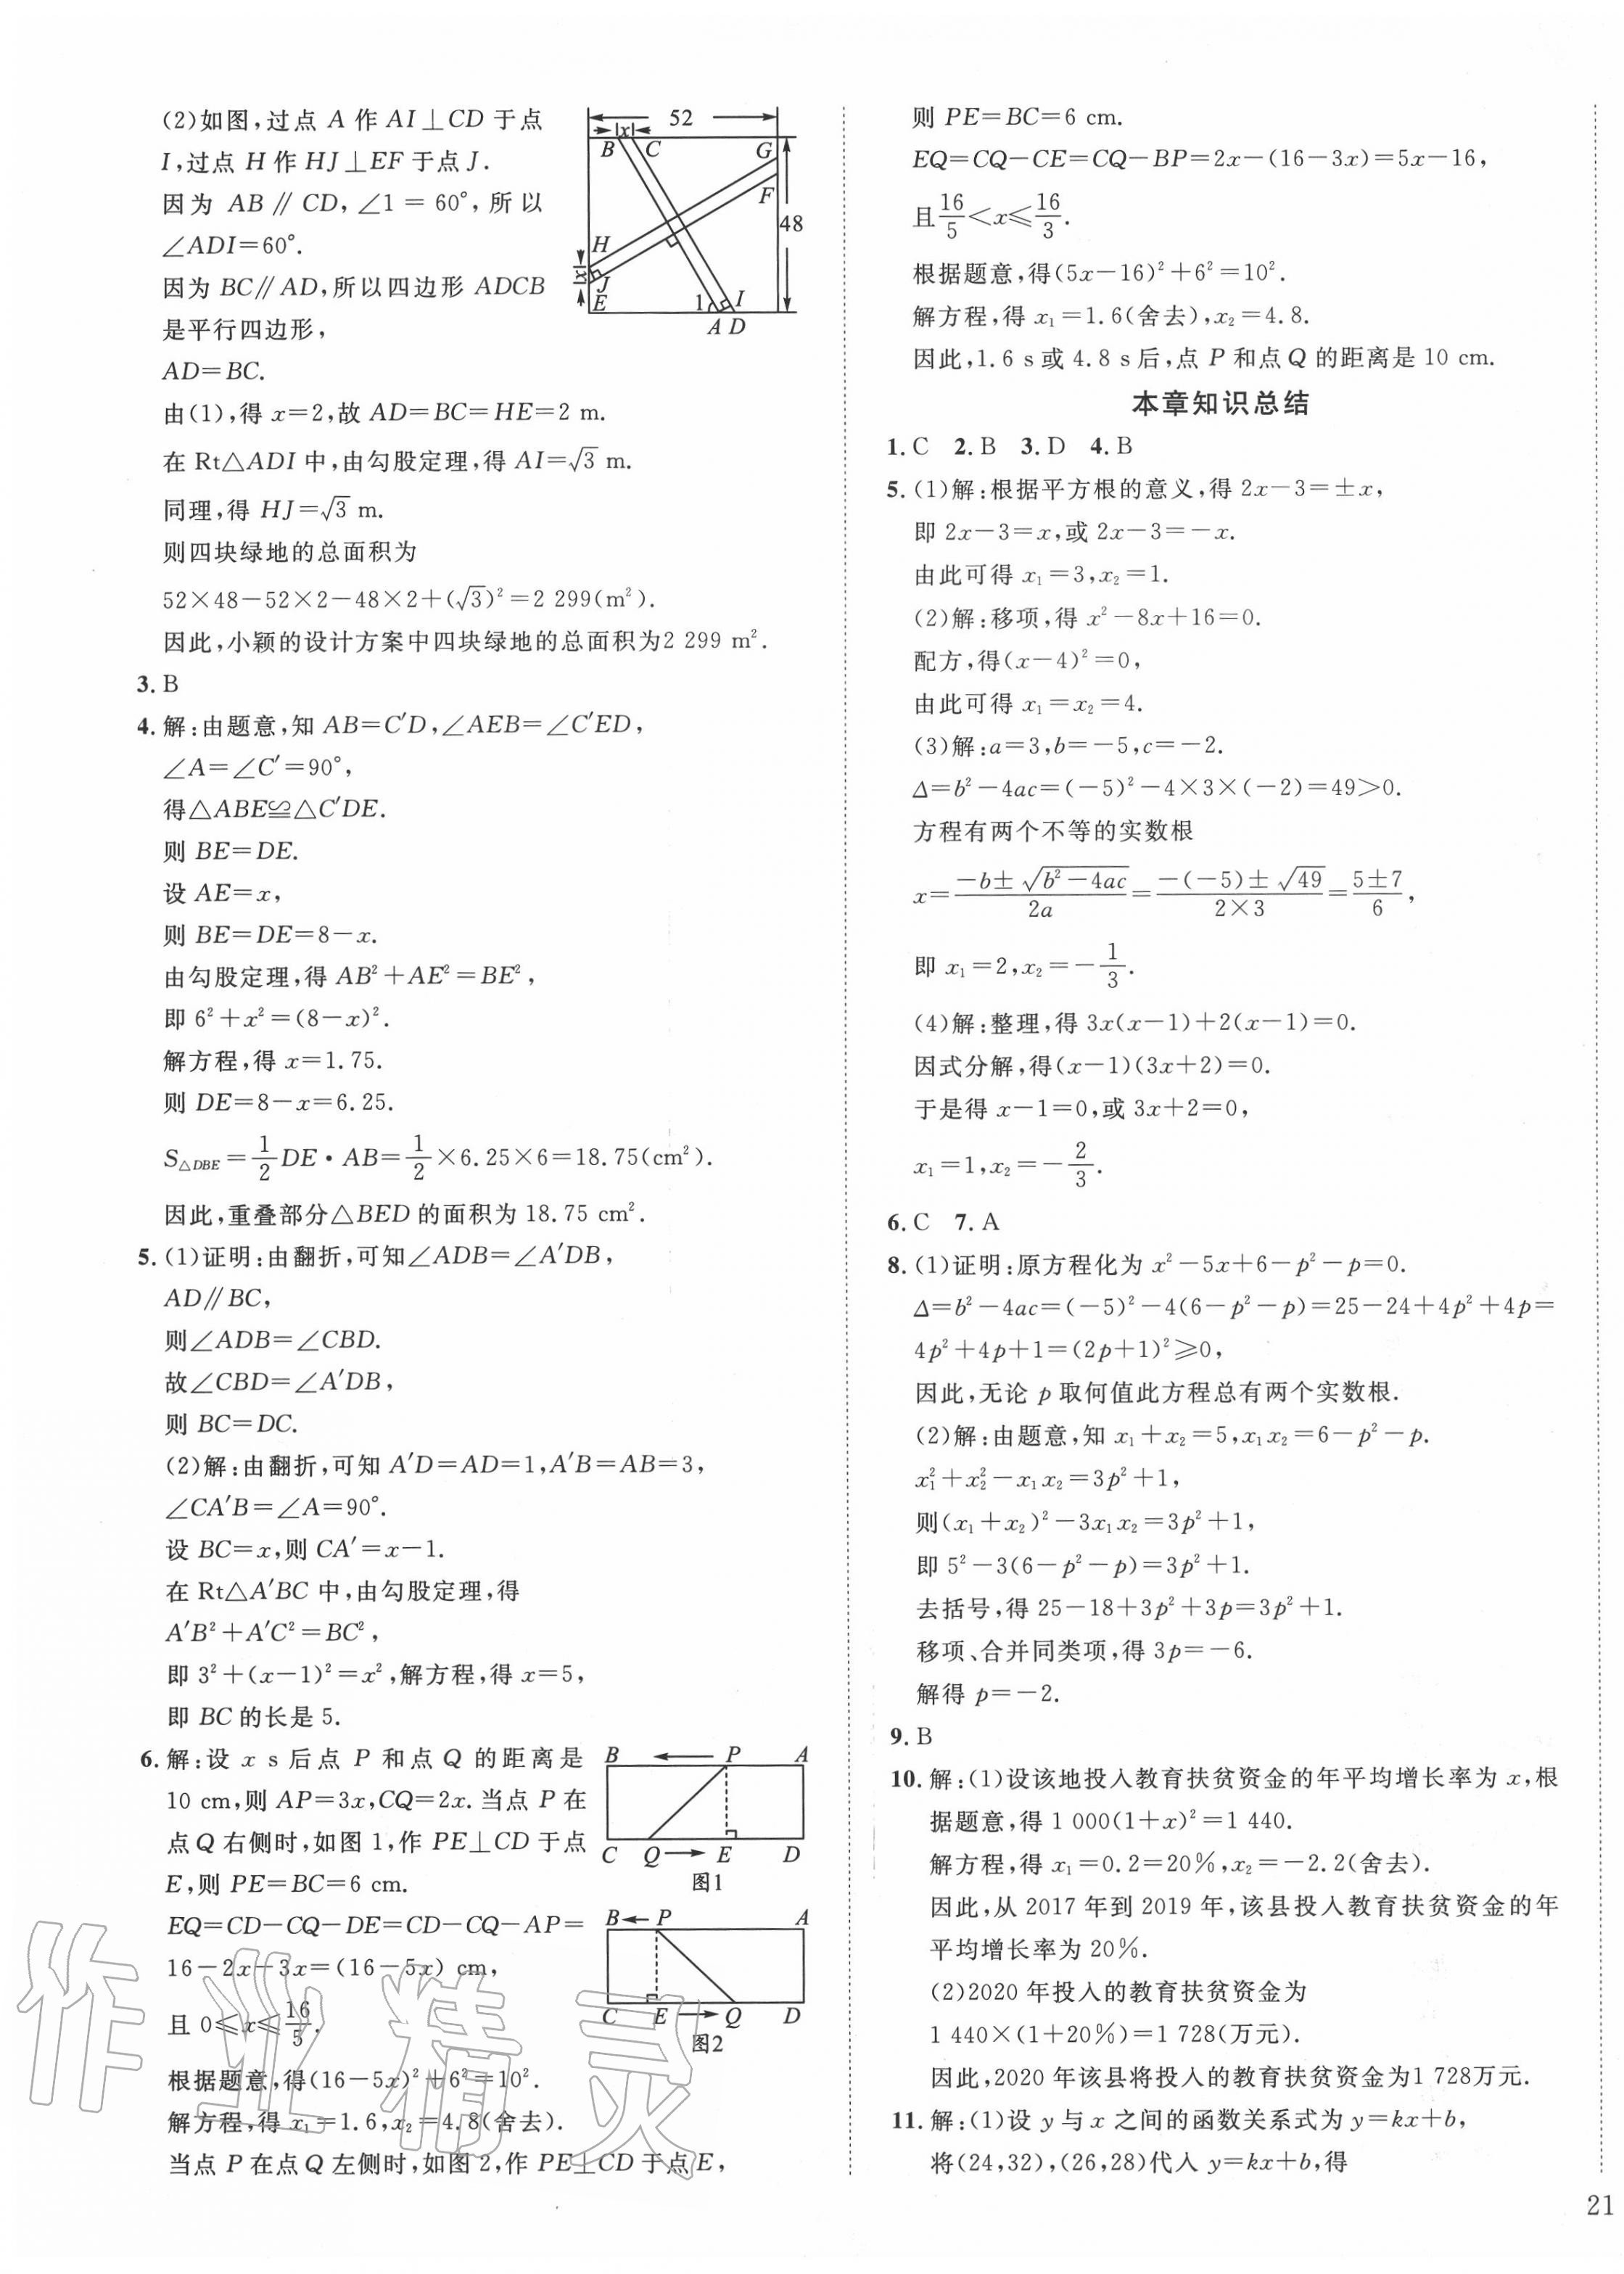 (2)如图,过点 A 作 AI⊥CD 于点
I,过点 H 作 HJ⊥EF 于点 J.
因为 AB∥CD,∠1=60°,所以
∠ADI=60°.
因为 BC∥AD,所以四边形 ADCB
是平行四边形,
AD=BC.
由(1),得 x=2,故 AD=BC=HE=2 m.
在 Rt△ADI 中,由勾股定理,得 AI=√3 m.
同理,得 HJ=√3 m.
则四块绿地的总面积为
52×48-52×2-48×2+(√3)²=2 299(m²).
因此,小颖的设计方案中四块绿地的总面积为2 299 m².
52
x
B C G
F
48
H
x
J
E
1 I
A D
3. B
4. 解:由题意,知 AB=C′D,∠AEB=∠C′ED,
∠A=∠C′=90°,
得△ABE≌△C′DE.
则 BE=DE.
设 AE=x,
则 BE=DE=8-x.
由勾股定理,得 AB²+AE²=BE²,
即 6²+x²=(8-x)².
解方程,得 x=1.75.
则 DE=8-x=6.25.
S△DBE=1/2 DE·AB=1/2×6.25×6=18.75(cm²).
因此,重叠部分△BED 的面积为 18.75 cm².
5. (1)证明:由翻折,可知∠ADB=∠A′DB,
AD∥BC,
则∠ADB=∠CBD.
故∠CBD=∠A′DB,
则 BC=DC.
(2)解:由翻折,可知 A′D=AD=1,A′B=AB=3,
∠CA′B=∠A=90°.
设 BC=x,则 CA′=x-1.
在 Rt△A′BC 中,由勾股定理,得
A′B²+A′C²=BC²,
即 3²+(x-1)²=x²,解方程,得 x=5,
即 BC 的长是 5.
6. 解:设 x s 后点 P 和点 Q 的距离是
10 cm,则 AP=3x,CQ=2x.当点 P 在
点 Q 右侧时,如图 1,作 PE⊥CD 于点
E,则 PE=BC=6 cm.
EQ=CD-CQ-DE=CD-CQ-AP=
16-2x-3x=(16-5x) cm,
且 0≤x≤16/5.
根据题意,得(16-5x)²+6²=10².
解方程,得 x₁=1.6,x₂=4.8(舍去).
当点 P 在点 Q 左侧时,如图 2,作 PE⊥CD 于点 E,
B P A
C Q E D
图1
B P A
C E Q D
图2
作业精灵
则 PE=BC=6 cm.
EQ=CQ-CE=CQ-BP=2x-(16-3x)=5x-16,
且16/5<x≤16/3.
根据题意,得(5x-16)²+6²=10².
解方程,得 x₁=1.6(舍去),x₂=4.8.
因此,1.6 s 或 4.8 s 后,点 P 和点 Q 的距离是 10 cm.
本章知识总结
1. C 2. B 3. D 4. B
5. (1)解:根据平方根的意义,得 2x-3=±x,
即 2x-3=x,或 2x-3=-x.
由此可得 x₁=3,x₂=1.
(2)解:移项,得 x²-8x+16=0.
配方,得(x-4)²=0,
由此可得 x₁=x₂=4.
(3)解:a=3,b=-5,c=-2.
Δ=b²-4ac=(-5)²-4×3×(-2)=49>0.
方程有两个不等的实数根
x=(-b±√(b²-4ac))/2a=(-(-5)±√49)/(2×3)=(5±7)/6,
即 x₁=2,x₂=-1/3.
(4)解:整理,得 3x(x-1)+2(x-1)=0.
因式分解,得(x-1)(3x+2)=0.
于是得 x-1=0,或 3x+2=0,
x₁=1,x₂=-2/3.
6. C 7. A
8. (1)证明:原方程化为 x²-5x+6-p²-p=0.
Δ=b²-4ac=(-5)²-4(6-p²-p)=25-24+4p²+4p=
4p²+4p+1=(2p+1)²≥0,
因此,无论 p 取何值此方程总有两个实数根.
(2)解:由题意,知 x₁+x₂=5,x₁x₂=6-p²-p.
x₁²+x₂²-x₁x₂=3p²+1,
则(x₁+x₂)²-3x₁x₂=3p²+1,
即 5²-3(6-p²-p)=3p²+1.
去括号,得 25-18+3p²+3p=3p²+1.
移项、合并同类项,得 3p=-6.
解得 p=-2.
9. B
10. 解:(1)设该地投入教育扶贫资金的年平均增长率为 x,根
据题意,得 1 000(1+x)²=1 440.
解方程,得 x₁=0.2=20%,x₂=-2.2(舍去).
因此,从 2017 年到 2019 年,该县投入教育扶贫资金的年
平均增长率为 20%.
(2)2020 年投入的教育扶贫资金为
1 440×(1+20%)=1 728(万元).
因此,2020 年该县将投入的教育扶贫资金为1 728万元.
11. 解:(1)设 y 与 x 之间的函数关系式为 y=kx+b,
将(24,32),(26,28)代入 y=kx+b,得
21